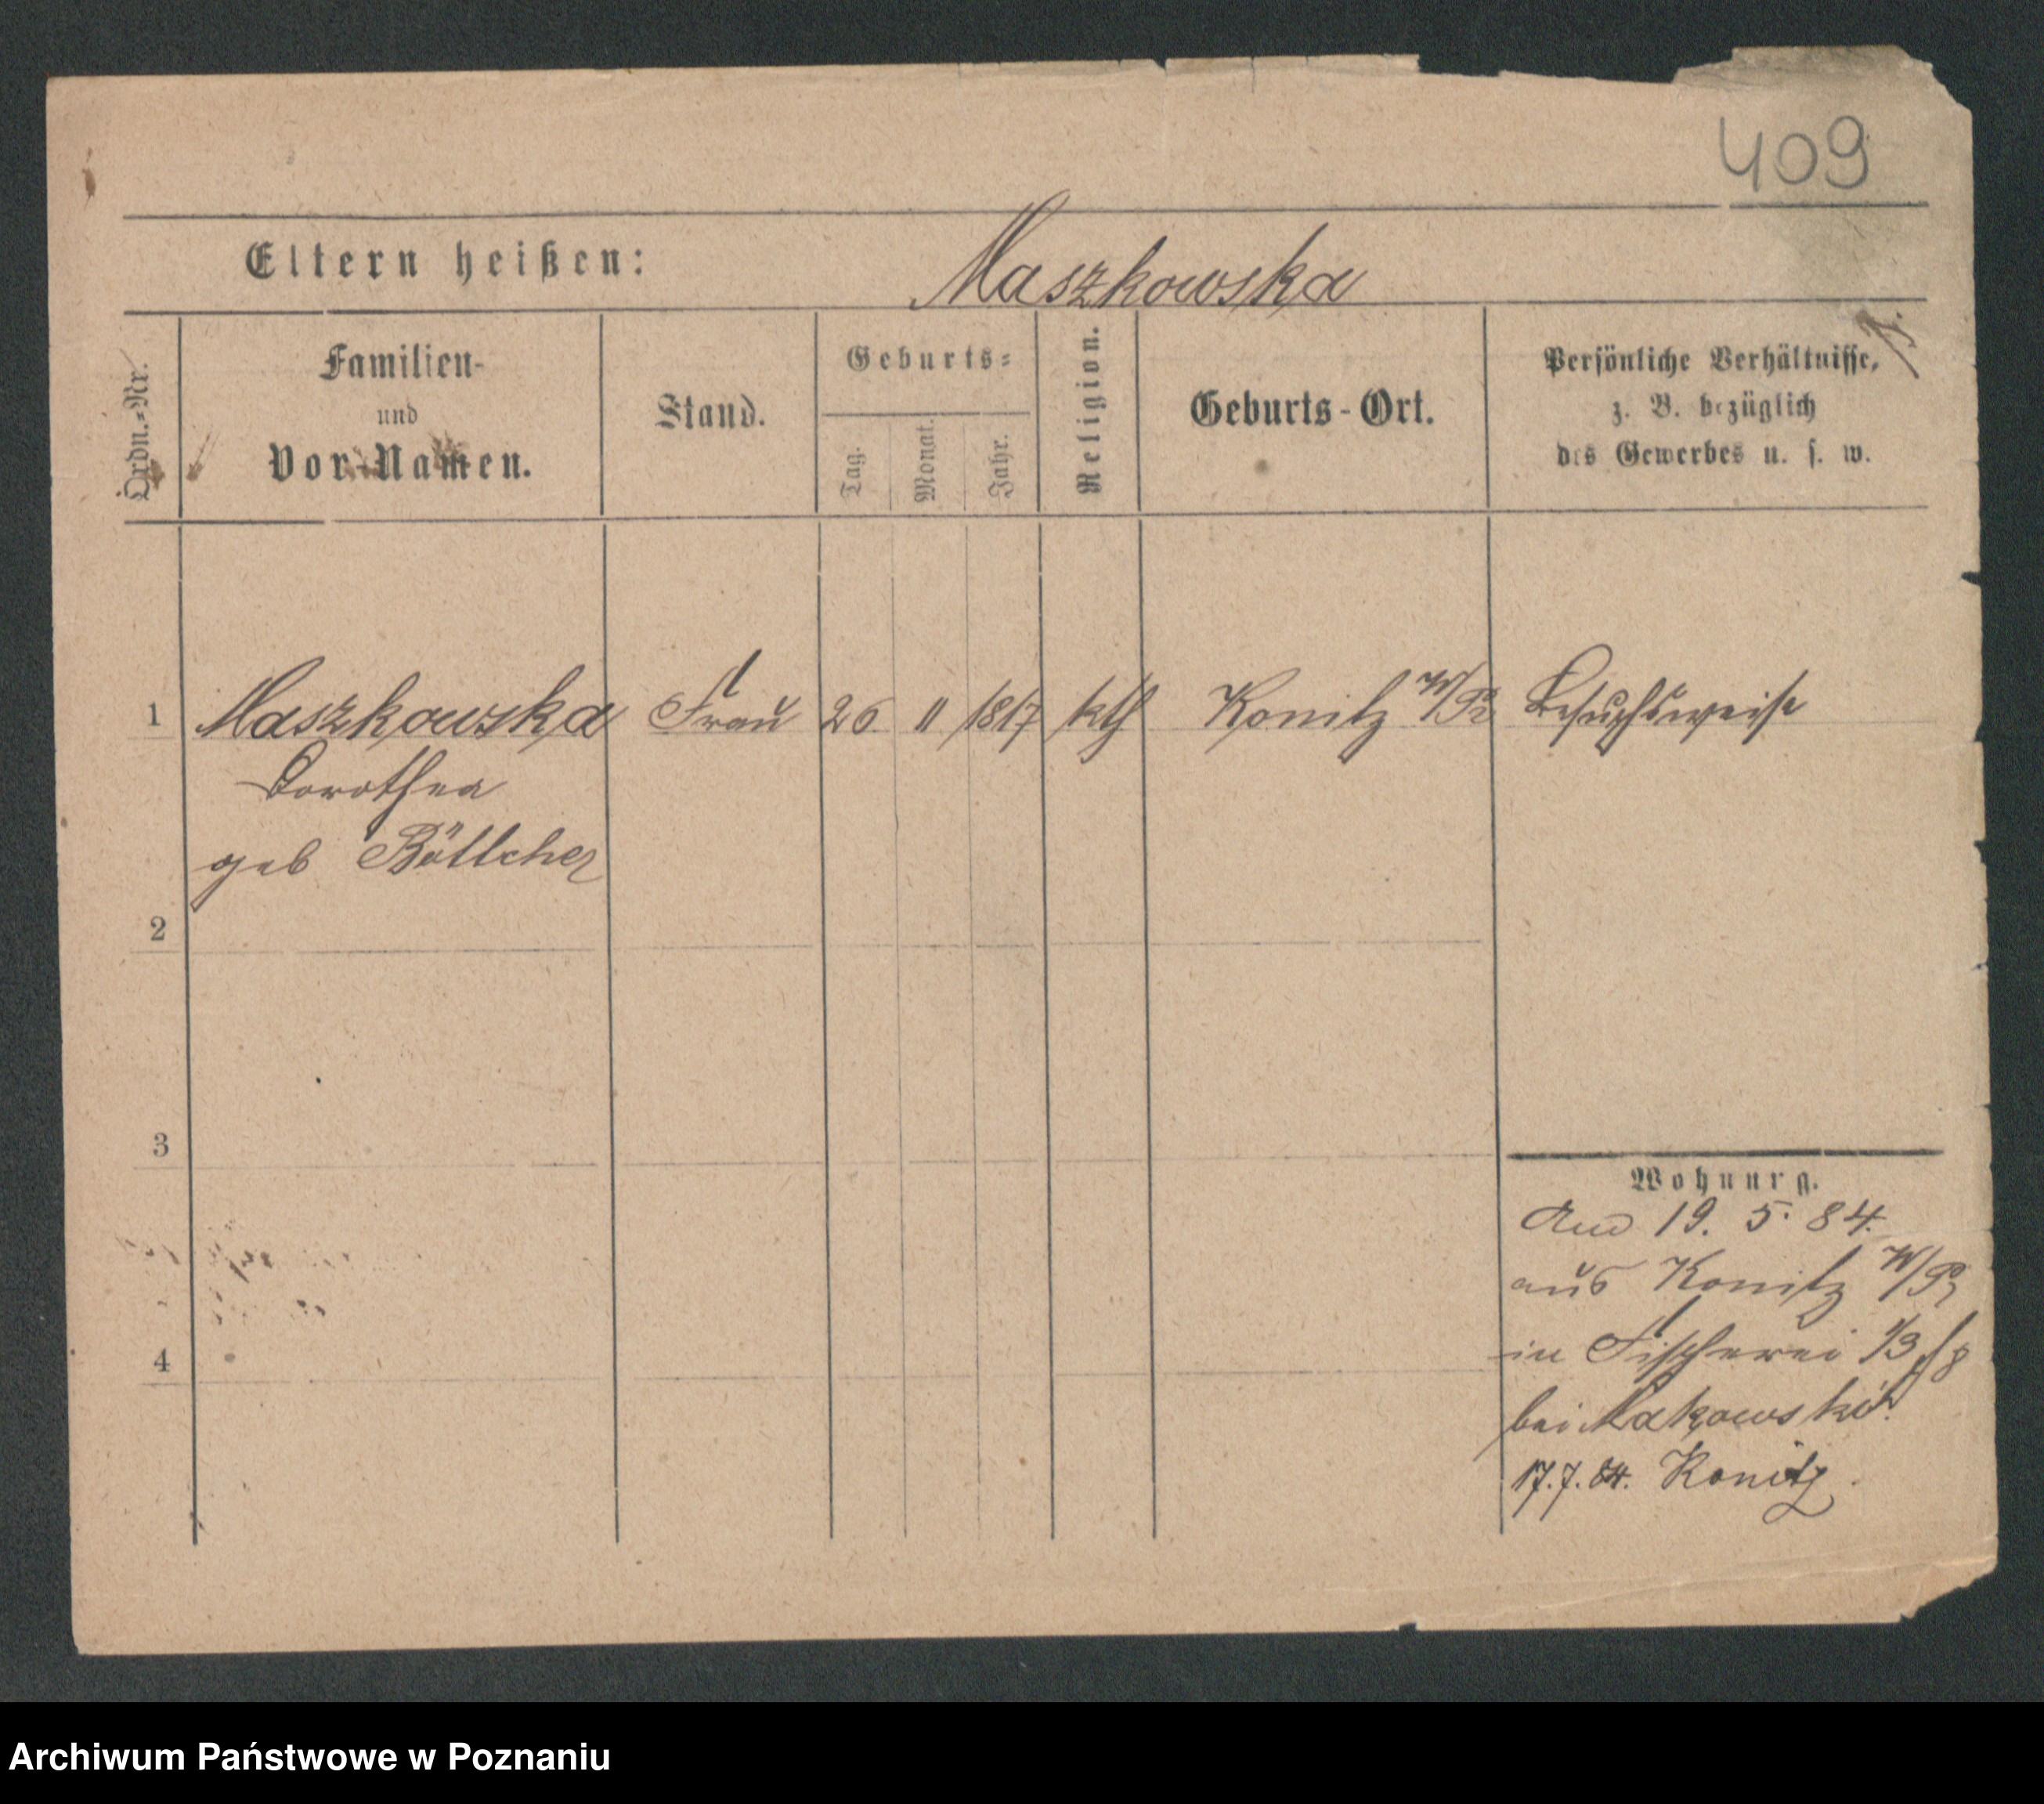 409
Eltern heißen: Maszkowska
Ordn.-Nr.
Familien-
und
Vor-Namen.
Stand.
Geburts-
Tag.
Monat.
Jahr.
Religion.
Geburts-Ort.
Persönliche Verhältnisse,
z. B. bezüglich
des Gewerbes u. s. w.
1 Maszkowska Frau 26 11 1817 kth Konitz W/Pr Besuchsweise
Dorothea
geb Böttcher
2
3
4
Wohnung.
19. 5. 84.
aus Konitz W/Pr
in Fischerei 1/3
bei Makowski.
17.7.84. Konitz.
Archiwum Państwowe w Poznaniu